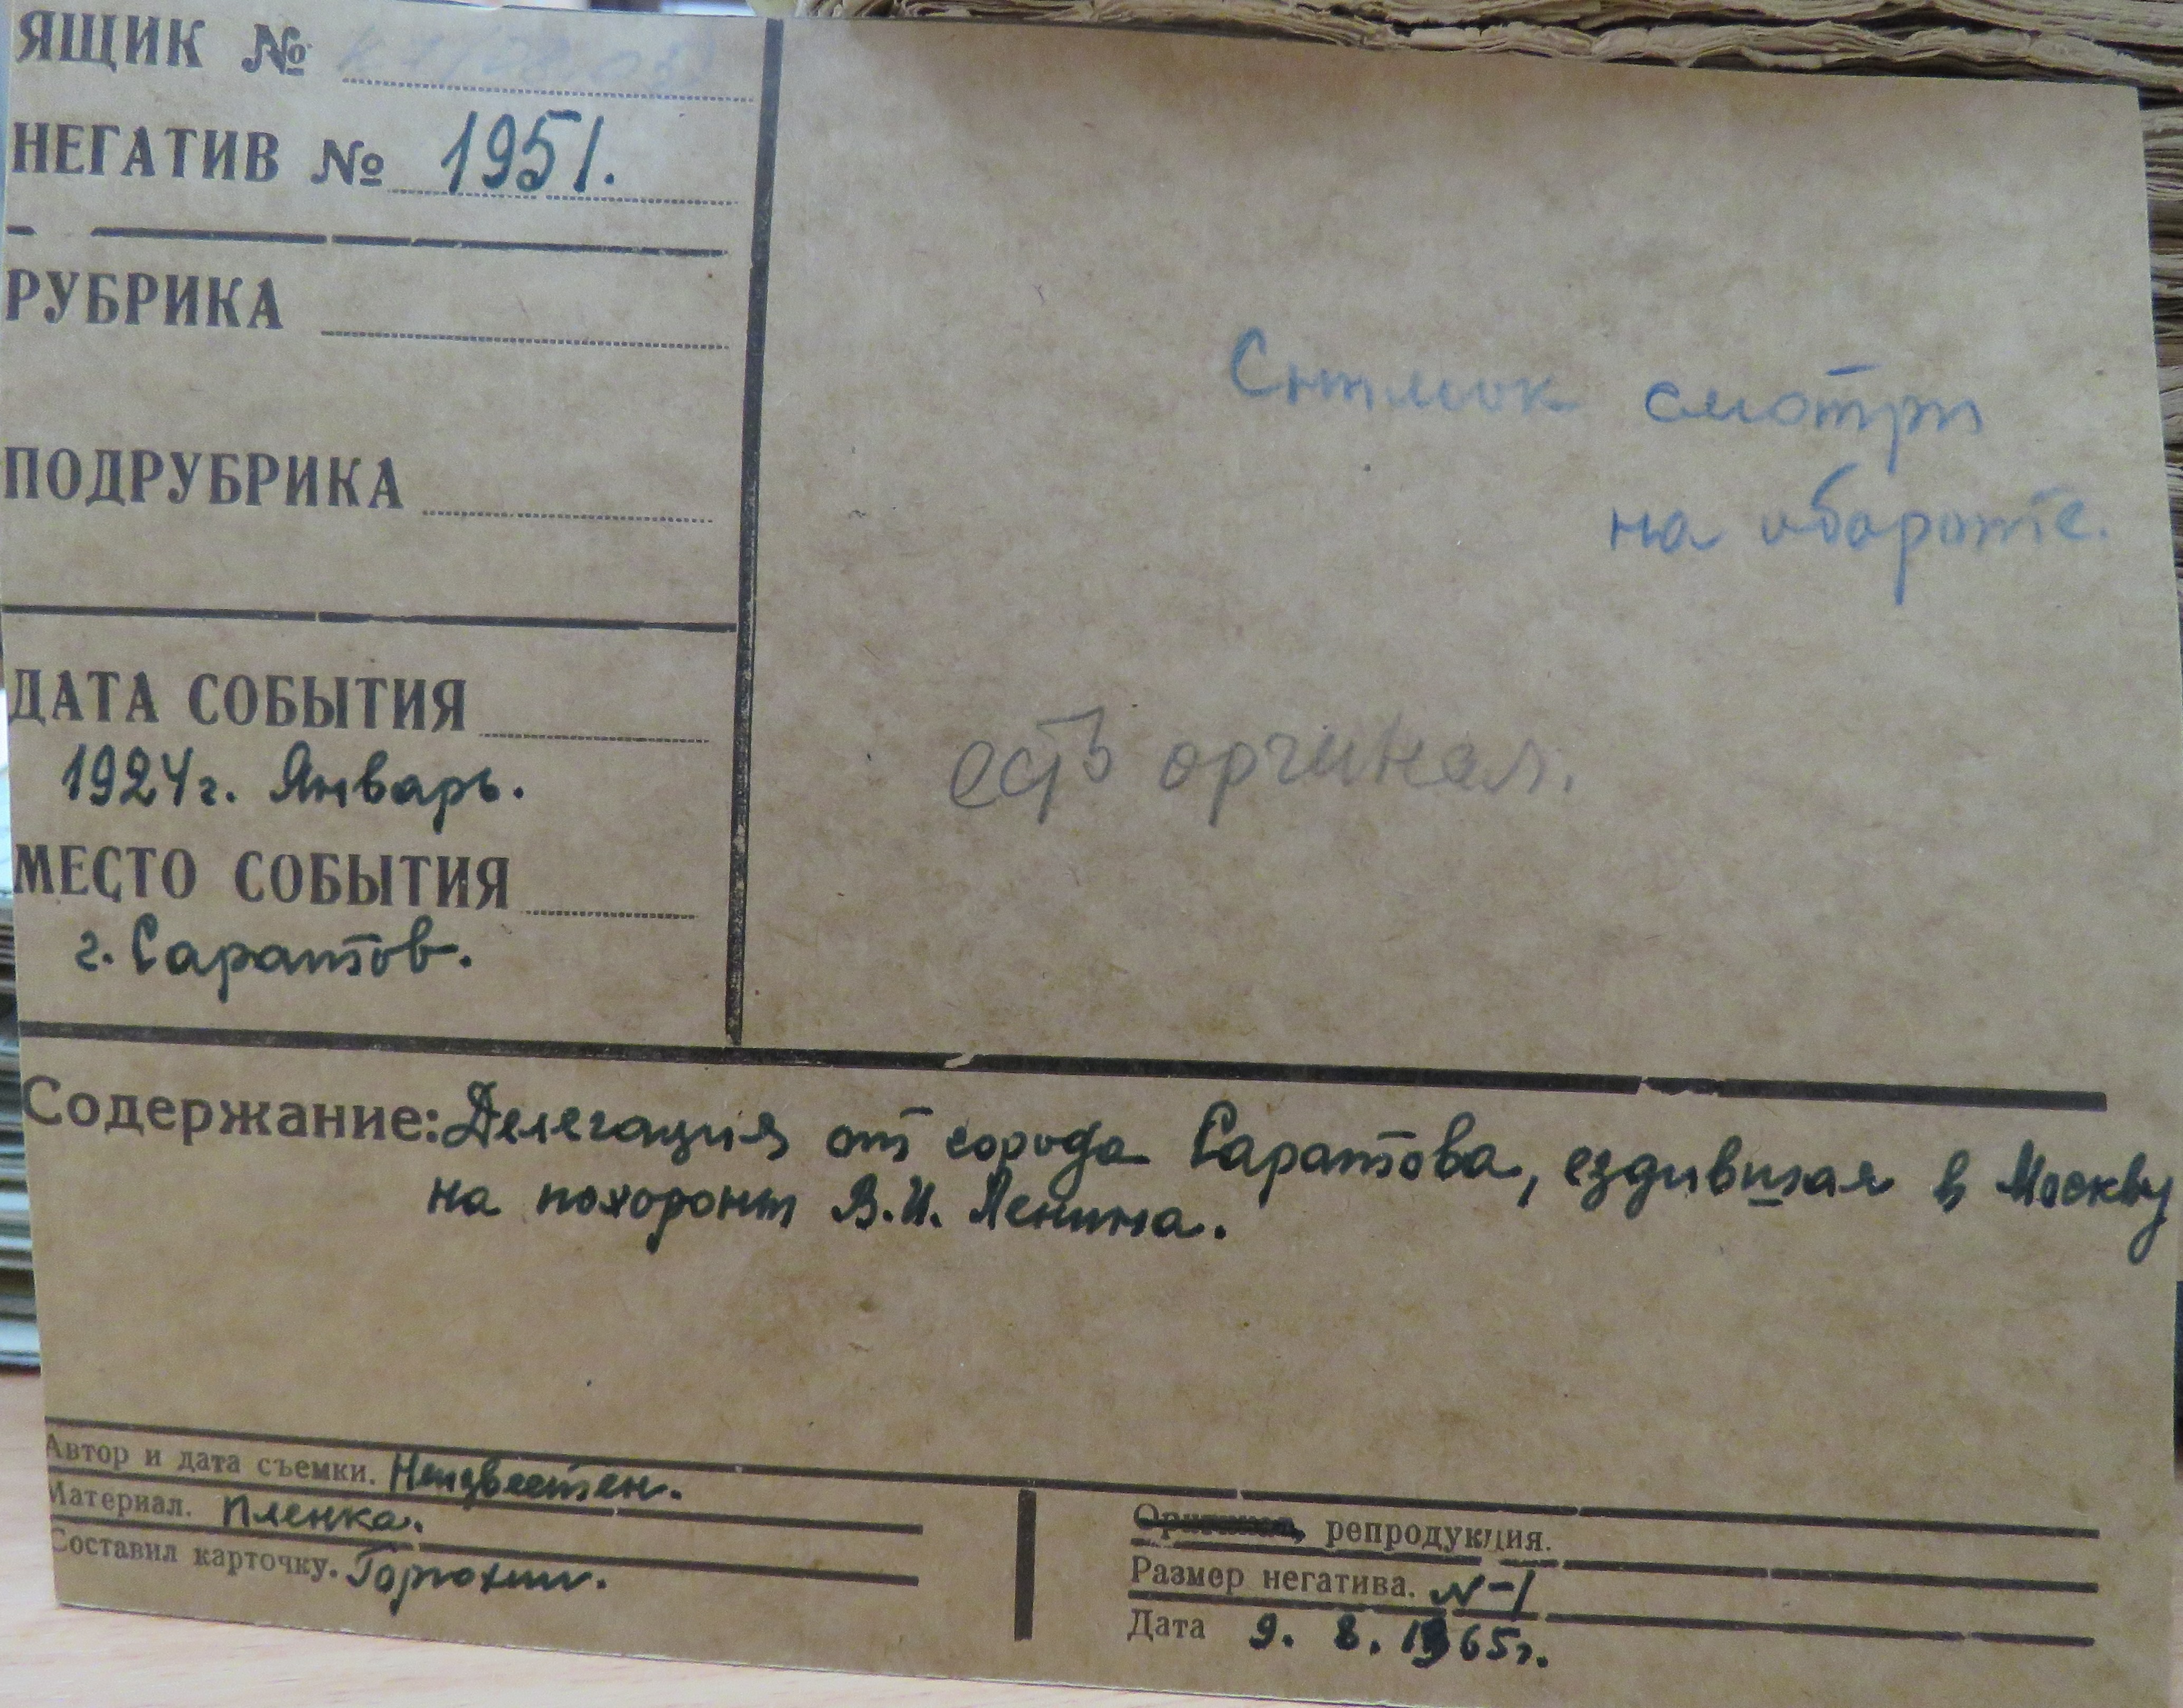 ЯЩИК №
НЕГАТИВ № 1951.
РУБРИКА
ПОДРУБРИКА
ДАТА СОБЫТИЯ
1924 г. Январь.
МЕСТО СОБЫТИЯ
г. Саратов.
Снимок смотри
на обороте.
есть оргинал.
Содержание: Делегация от города Саратова, ездившая в Москву
на похороны В.И. Ленина.
Автор и дата съемки. Неизвестен.
Материал. Пленка.
Составил карточку.
Оригинал, репродукция.
Размер негатива. N-1
Дата 9. 8. 1965г.